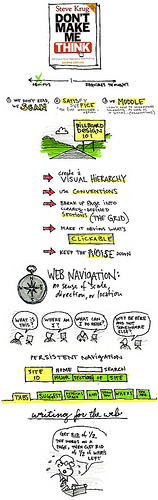 Steve Krug
DON'T
MAKE
ME
THINK
OBVIOUS
REQUIRES THOUGHT
① WE DON'T READ,
WE SCAN
② SATISFICE
③ WE MUDDLE
BILLBOARD
DESIGN
101
→ create a
VISUAL HIERARCHY
→ USE CONVENTIONS
→ BREAK UP PAGE INTO
CLEARLY-DEFINED
SECTIONS (THE GRID)
→ MAKE IT OBVIOUS WHAT'S
CLICKABLE
→ KEEP THE NOISE DOWN
WEB NAVIGATION:
no sense of scale,
direction, or location
WHAT IS
THIS?
WHERE AM
I?
WHAT CAN
I DO HERE?
WHY BE HERE
AND NOT
SOMEWHERE
ELSE?
PERSISTENT NAVIGATION
SITE
ID
HOME
SEARCH
MAJOR SECTIONS OF SITE
TABS
SUGGEST
AND
WHERE
writing for the web
GET RID OF ½
THE WORDS ON A
PAGE, THEN GET RID
OF ½ OF WHAT'S
LEFT